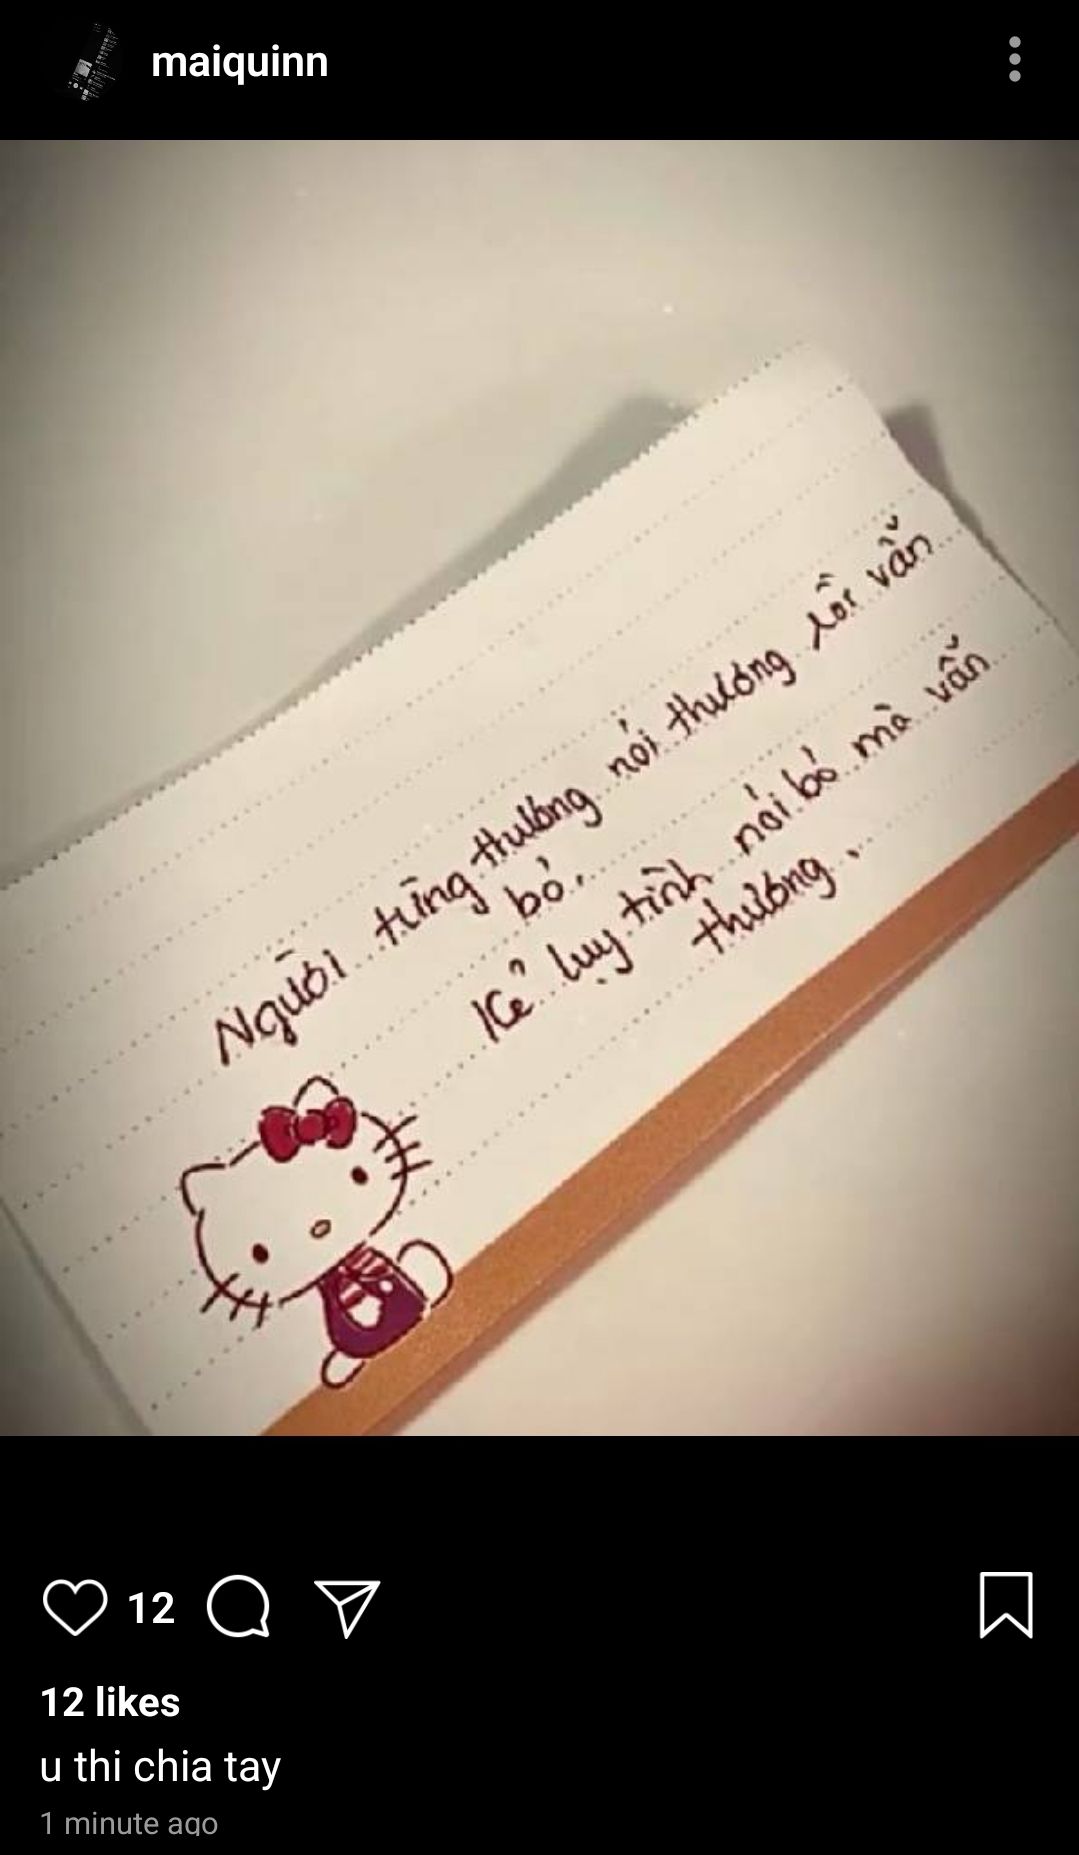 maiquinn
Người từng thương nói thương rồi vẫn
bỏ.
Kẻ lụy tình nói bỏ mà vẫn
thương.
12
12 likes
u thi chia tay
1 minute ago